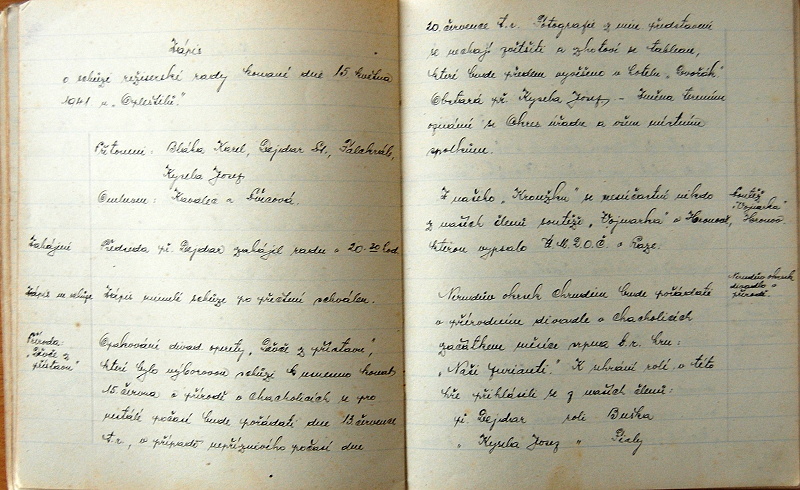 Zápis
o schůzi režisérské rady konané dne 15. května
1941 u „Opleštilů."
Přítomni: Bláha Karel, Dejdar St., Pálchráb,
Kysela Josef
Omluven: Kavalec a
Zahájení
Předseda př. Dejdar zahájil radu o 20.20 hod.
Zápis m. schůze
Zápis minulé schůze po přečtení schválen.
Příroda:
„Děvče z
přístavu"
Opakování divad. operety „Děvče z přístavu",
které bylo výborovou schůzí usneseno konat
15. června v přírodě v Chacholicích se pro
nestálé počasí bude pořádati dne 13. července
t.r., v případě nepříznivého počasí dne
20. července t.r. Fotografie z min. představení
se nechají zvětšiti a zhotoví se tableau,
které bude předem vyvěšeno u hotelu „Dvořák".
Obstará př. Kysela Josef – Změna termínu
oznámí se Okres. úřadu a všem místním
spolkům.
Soutěž
„Vojnarka"
Hronov.
Z našeho „Kroužku" se nesúčastní nikdo
z našich členů soutěže „Vojnarka" v Hronově,
kterou vypsalo Ú.M.D.O.Č. v Praze.
Nerudův okrsek
divadlo v
přírodě.
Nerudův okrsek Chrudim bude pořádati
v přírodním divadle v Chacholicích
začátkem měsíce srpna t.r. hru:
„Naši furianti". K hraní rolí v této
hře přihlásili se z našich členů:
př. Dejdar roli Buška
„ Kysela Josef „ Fialy